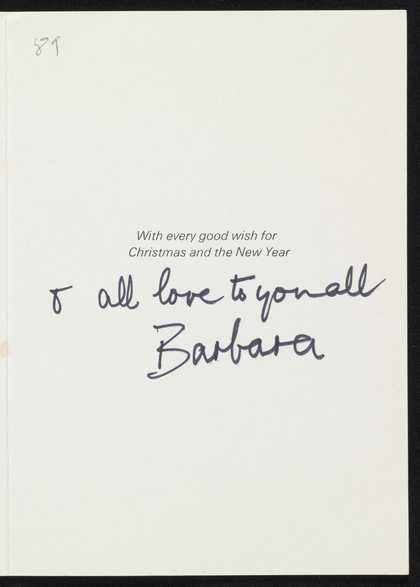 89
With every good wish for
Christmas and the New Year
& all love to you all
Barbara